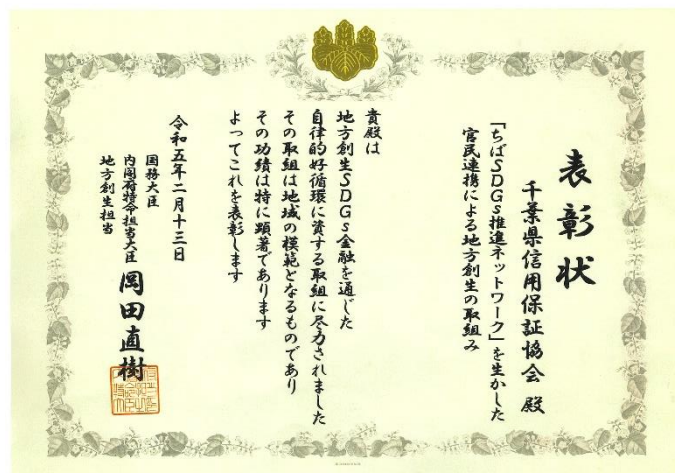 表彰状
千葉県信用保証協会 殿
「ちばSDGs推進ネットワーク」を生かした
官民連携による地方創生の取組み
貴殿は
地方創生SDGs金融を通じた
自律的好循環に資する取組に尽力されました
その取組は地域の模範となるものであり
その功績は特に顕著であります
よってこれを表彰します
令和五年二月十三日
国務大臣
内閣府特命担当大臣
地方創生担当
岡田直樹